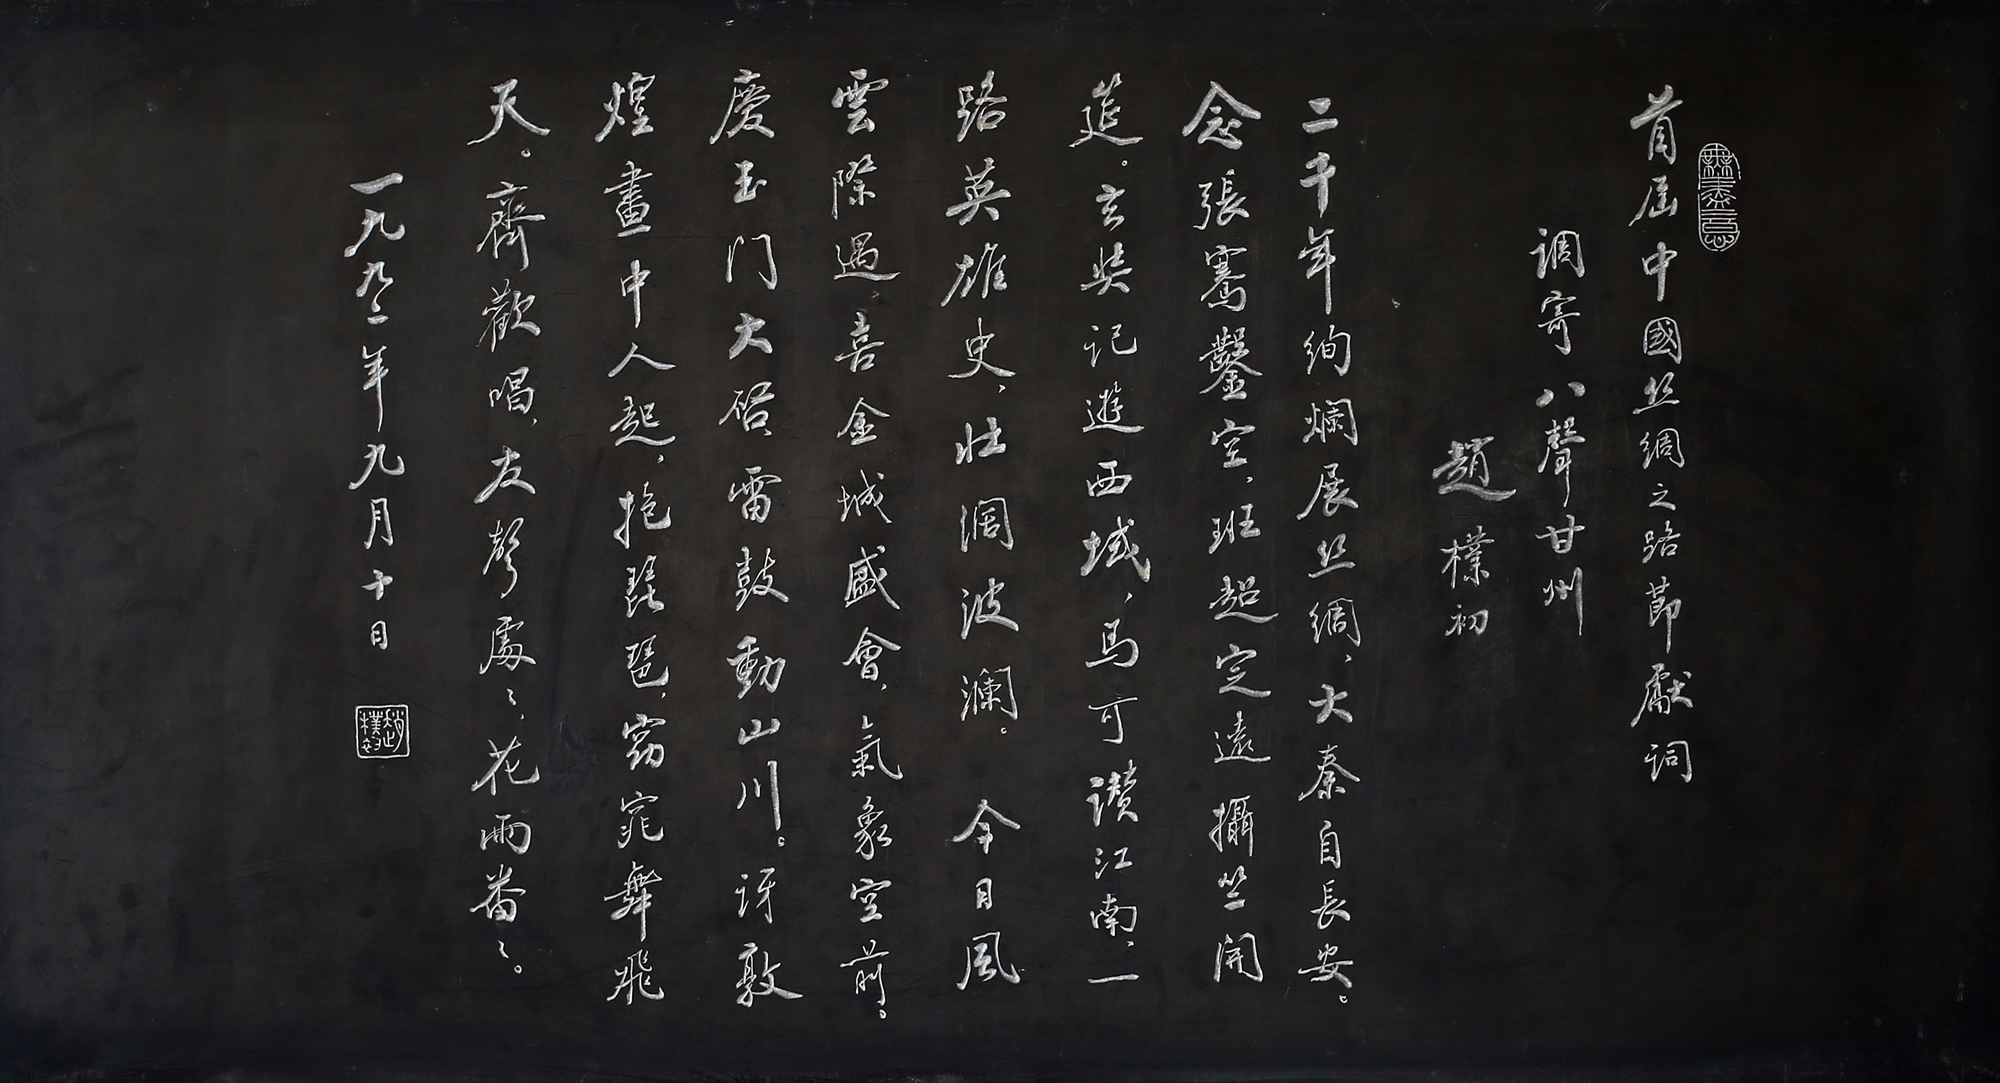 無盡意
首屆中國丝綢之路節獻詞
调寄八聲甘州
趙樸初
二千年絢爛展丝綢、大秦自長安。
念張騫鑿空、班超定遠、攝竺開
筵。玄奘记遊西域、馬可讚江南、一
路英雄史、壮濶波瀾。今日風
雲際遇、喜金城盛會、氣象空前。
慶玉门大启、雷鼓動山川。讶敦
煌畫中人起、抱琵琶、窈窕舞飛
天。齊歡唱、友聲處〻、花雨番〻。
一九九二年九月十日
趙樸初